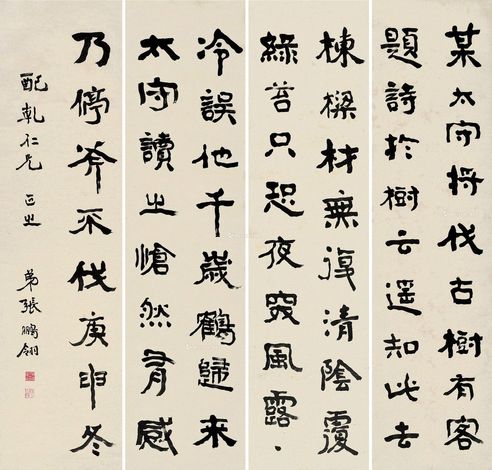 某太守将伐古樹有客
題詩於樹云遥知此去
棟樑材無復清陰覆
綠苔只恐夜穼風露
冷誤他千歲鶴歸来
太守讀之愴然有感
乃停斧不伐庚申冬
配乾仁兄正之
弟張鵬翎